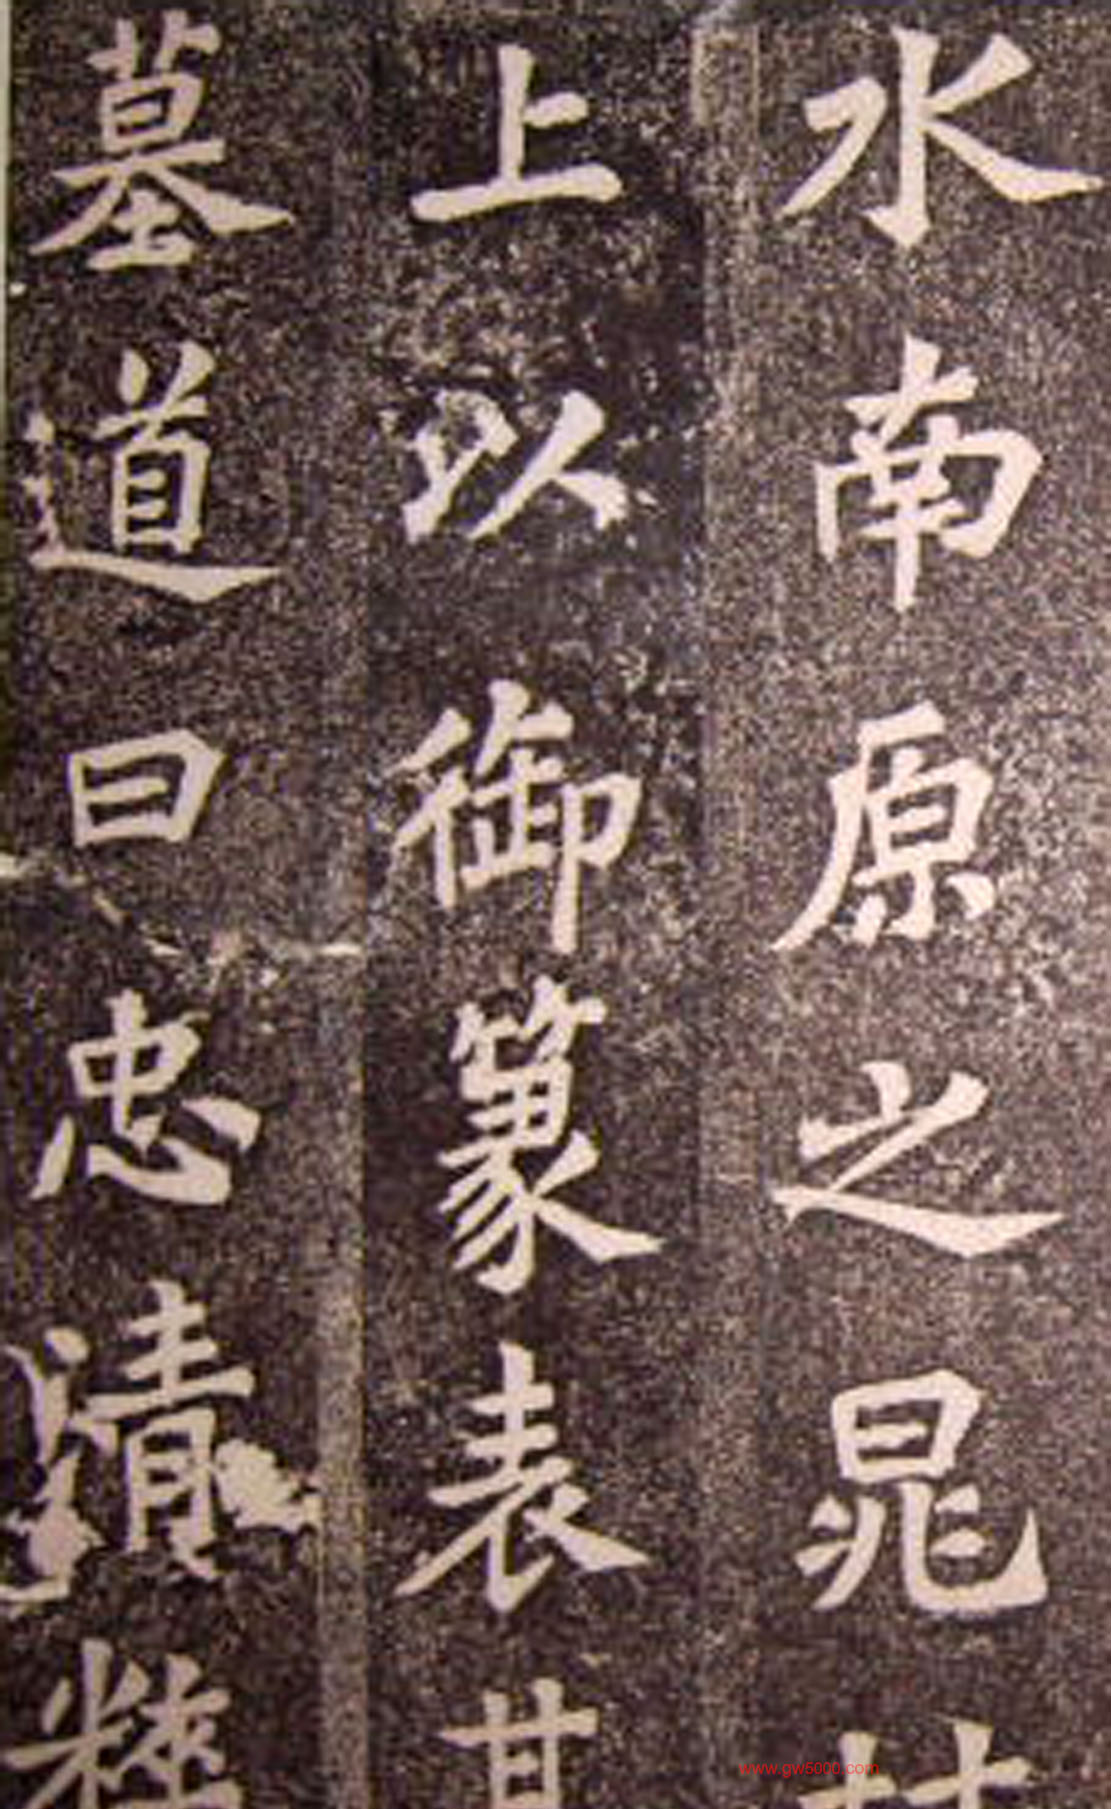 水南原之晁
上以御篆表其
墓道曰忠清粹
www.gw6000.com